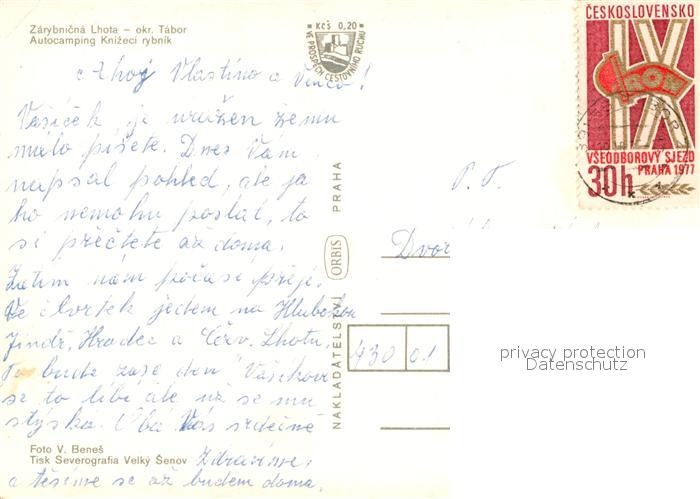 Zárybničná Lhota – okr. Tábor
Autocamping Knížecí rybník
Kčs 0,20
VE PROSPĚCH CESTOVNÍHO RUCHU
ČESKOSLOVENSKO
IX
ROH
VŠEODBOROVÝ SJEZD
PRAHA 1977
30h
Ahoj Vlastíno a Venco!
Vašíček je uražen že mu
málo píšete. Dnes Vám
napsal pohled, ale ja
ho nemohu poslat, to
si přečtete až doma.
Zatím nám počasí přeje.
Ve čtvrtek jedem na Hlubokou
Jindř. Hradec a Červ. Lhotu.
To bude zase den. Vašíkovi
se to líbí ale už se mu
stýská. Oba Vás srdečně
zdravíme,
a těšíme se až budem doma.
P. T.
Dvoř
430 01
NAKLADATELSTVÍ ORBIS PRAHA
Foto V. Beneš
Tisk Severografia Velký Šenov
privacy protection
Datenschutz